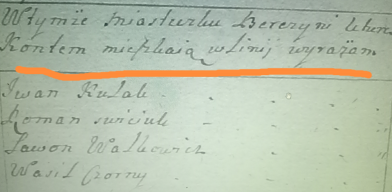 Wtymże miasteczku Berezyni
Kontem mieszkaią w linij wyrażam
Iwan Kulak
Roman
Lawon Walkowicz
Wasil Czorny